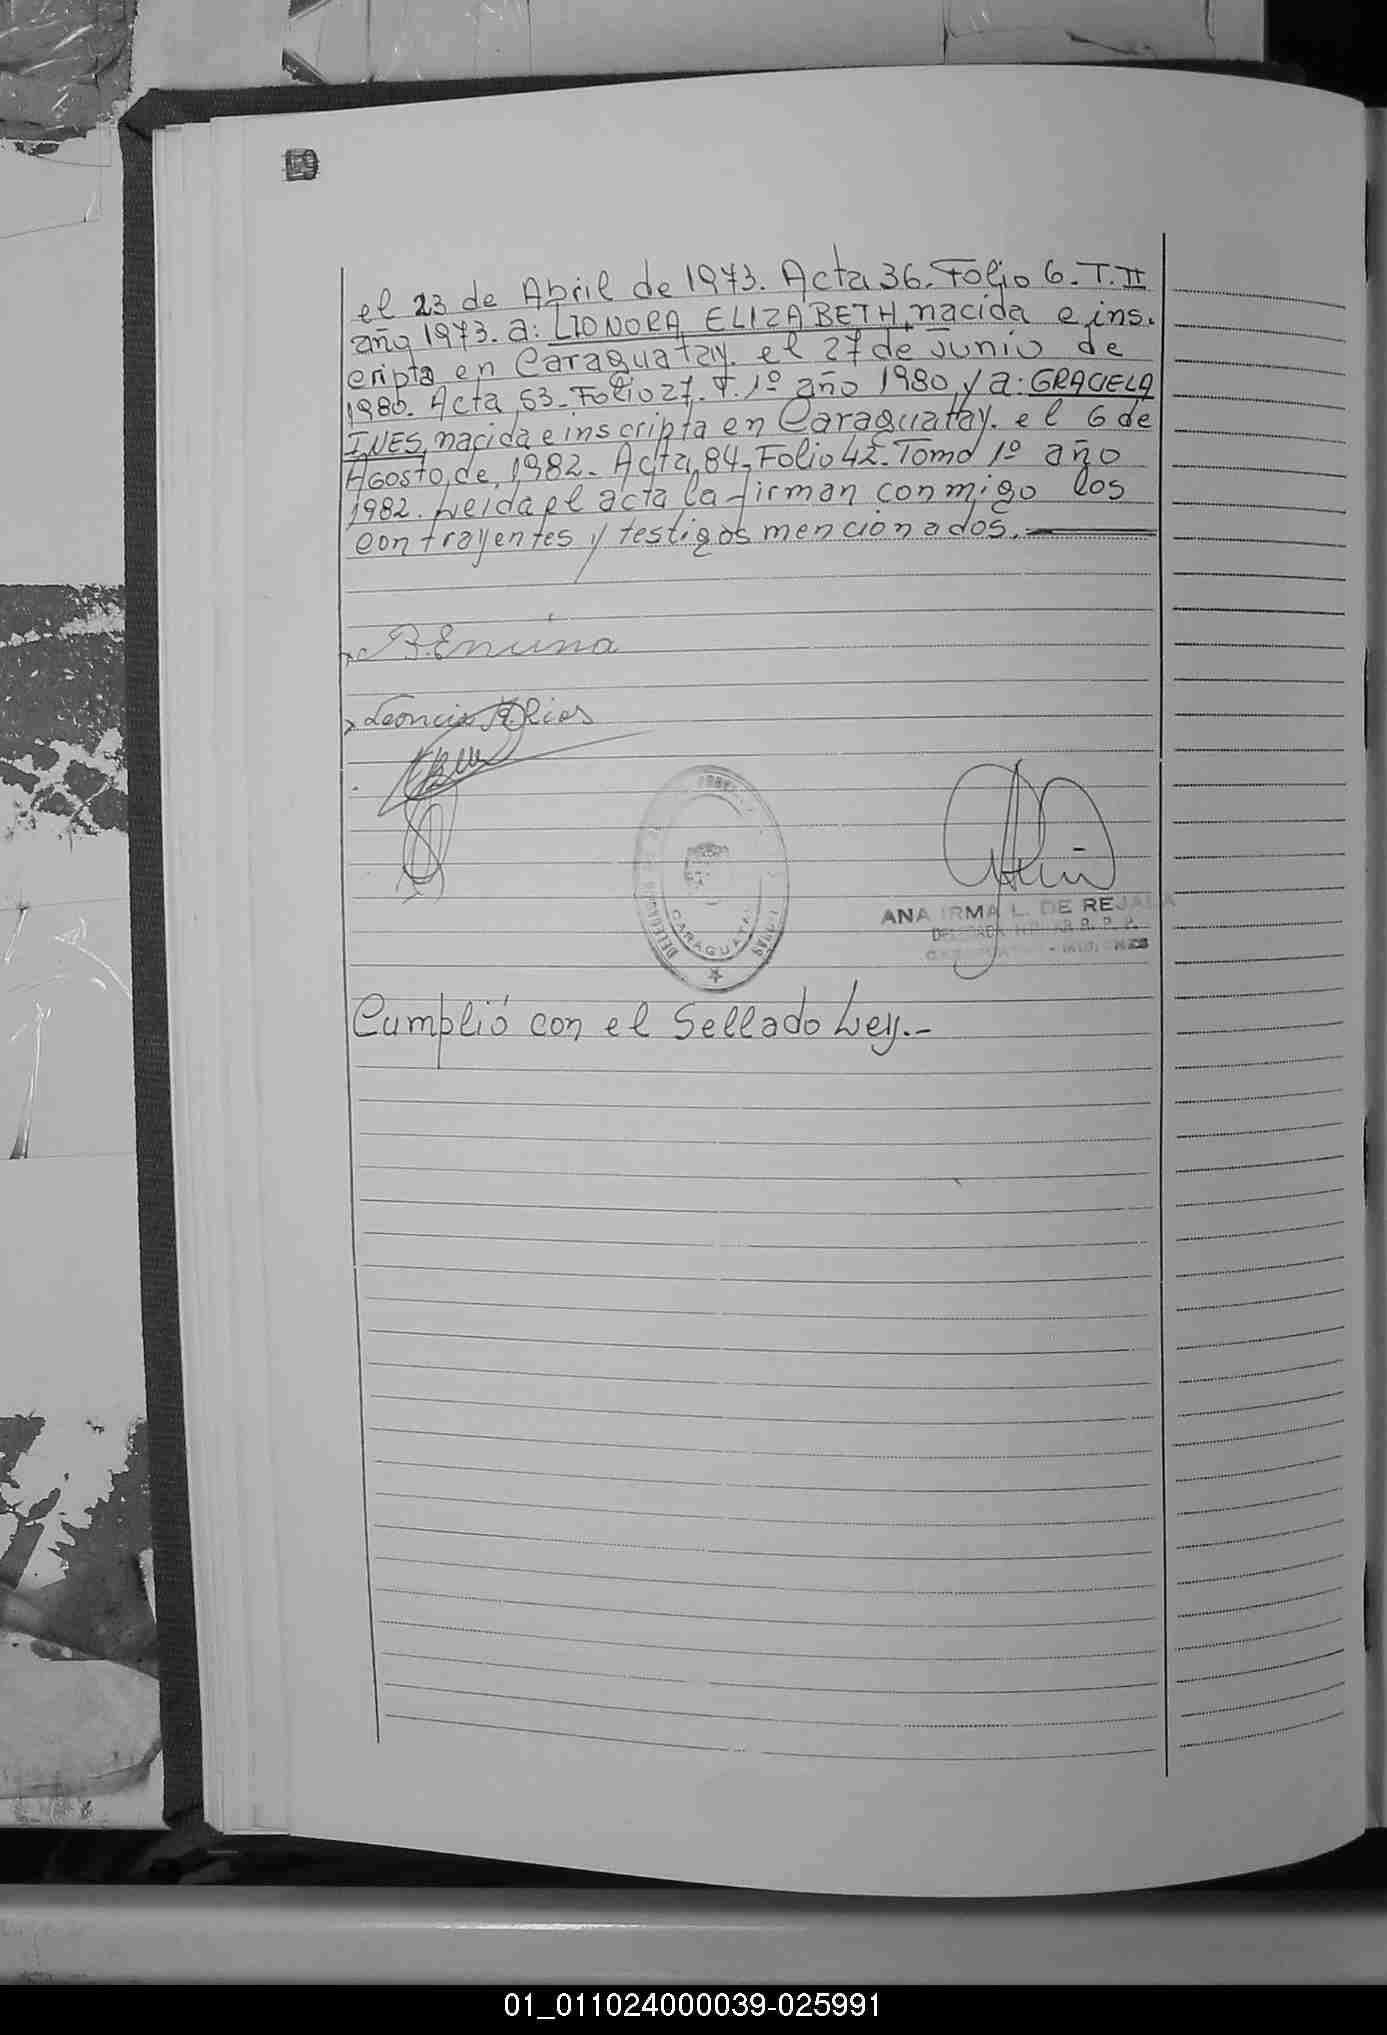 19
el 23 de Abril de 1973. Acta 36. Folio 6. T. II
año 1973. a: LIONORA ELIZABETH, nacida e ins.
cripta en Caraguatay. el 27 de Junio de
1980. Acta 53. Folio 27. T. 1º año 1980, y a: GRACIELA
INES, nacida e inscripta en Caraguatay. el 6 de
Agosto, de, 1982. Acta, 84. Folio 42. Tomo 1º año
1982. Leida el acta, la firman conmigo los
contrayentes y testigos mencionados.
Leoncio
CARAGUATAY
ANA IRMA L. DE REJALA
Cumplió con el Sellado Ley.-
01_011024000039-025991